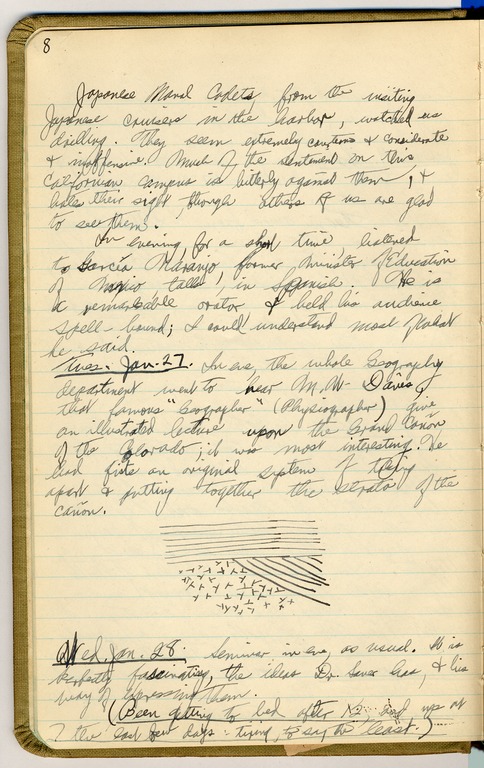 8
Japanese Naval Cadets, from the visiting
Japanese cruisers in the harbor, watched us
drilling. They seem extremely courteous & considerate
& inoffensive. Much of the sentiment on this
Californian campus is bitterly against them, &
hates their sight, though others of us are glad
to see them.
In evening, for a short time, listened
to García Naranjo, former Minister of Education
of Mexico talk, in Spanish. He is
a remarkable orator & held his audience
spell-bound; I could understand most of what
he said.
Tues. Jan. 27. In eve, the whole Geography
department went to hear M. W. Davis,
that famous "Geographer" (Physiographer) give
an illustrated lecture upon the Grand Cañon
of the Colorado; it was most interesting. He
had quite an original system of taking
apart & putting together the strata of the
cañon.
Wed. Jan. 28. Seminar in eve, as usual. It is
perfectly fascinating, the ideas Dr. Sauer has, & his
way of expressing them.
(Been getting to bed after 12 and up at
7 the last few days - tiring, to say the least.)